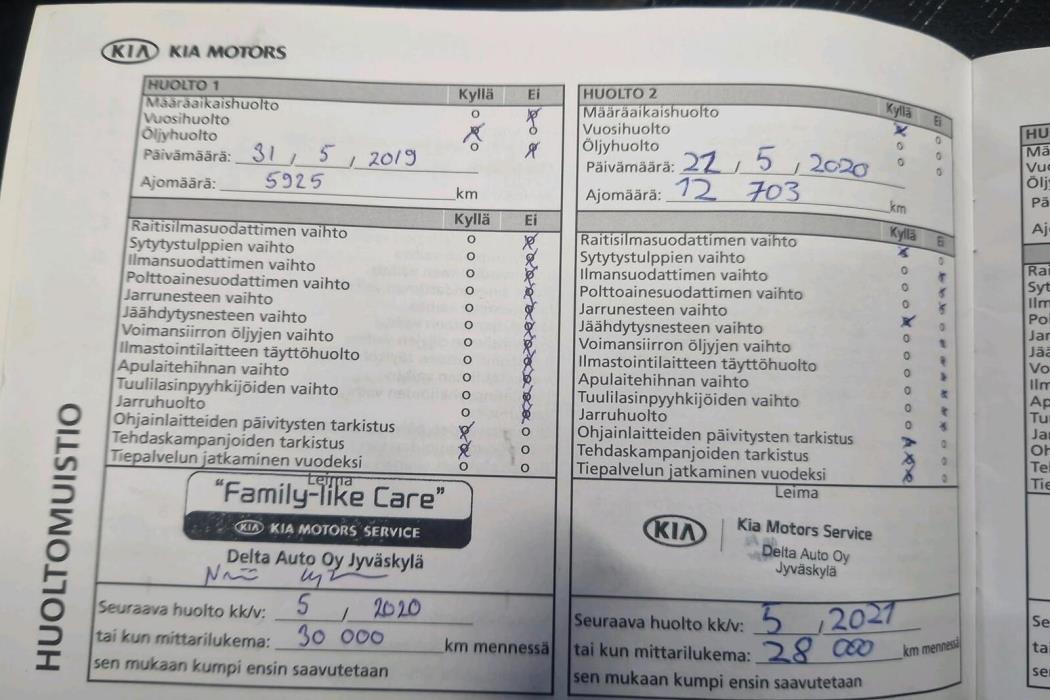 KIA KIA MOTORS
HUOLTO 1 Kyllä Ei
Määräaikaishuolto
Vuosihuolto
Öljyhuolto
Päivämäärä: 31 / 5 / 2019
Ajomäärä: 5925 km
Kyllä Ei
Raitisilmasuodattimen vaihto
Sytytystulppien vaihto
Ilmansuodattimen vaihto
Polttoainesuodattimen vaihto
Jarrunesteen vaihto
Jäähdytysnesteen vaihto
Voimansiirron öljyjen vaihto
Ilmastointilaitteen täyttöhuolto
Apulaitehihnan vaihto
Tuulilasinpyyhkijöiden vaihto
Jarruhuolto
Ohjainlaitteiden päivitysten tarkistus
Tehdaskampanjoiden tarkistus
Tiepalvelun jatkaminen vuodeksi
Leima
"Family-like Care"
KIA KIA MOTORS SERVICE
Delta Auto Oy Jyväskylä
Seuraava huolto kk/v: 5 / 2020
tai kun mittarilukema: 30 000 km mennessä
sen mukaan kumpi ensin saavutetaan
HUOLTO 2 Kyllä Ei
Määräaikaishuolto
Vuosihuolto
Öljyhuolto
Päivämäärä: 22 / 5 / 2020
Ajomäärä: 12 703 km
Kyllä Ei
Raitisilmasuodattimen vaihto
Sytytystulppien vaihto
Ilmansuodattimen vaihto
Polttoainesuodattimen vaihto
Jarrunesteen vaihto
Jäähdytysnesteen vaihto
Voimansiirron öljyjen vaihto
Ilmastointilaitteen täyttöhuolto
Apulaitehihnan vaihto
Tuulilasinpyyhkijöiden vaihto
Jarruhuolto
Ohjainlaitteiden päivitysten tarkistus
Tehdaskampanjoiden tarkistus
Tiepalvelun jatkaminen vuodeksi
Leima
KIA Kia Motors Service
Delta Auto Oy
Jyväskylä
Seuraava huolto kk/v: 5 / 2021
tai kun mittarilukema: 28 000 km mennessä
sen mukaan kumpi ensin saavutetaan
HUOLTOMUISTIO